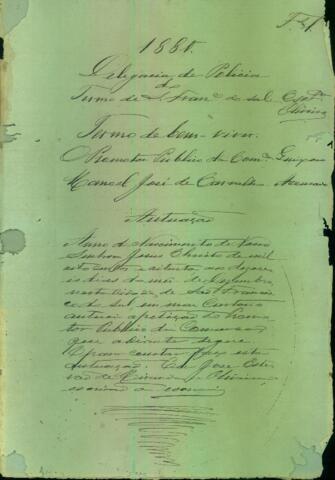 1880.
Delegacia de Policia
do
Termo de S. Fran.co do Sul Esc.am
Oliveira
Termo de bem viver.
O Promotor Publico da Com.ca
Manoel José de Carvalho
Autuação
Anno do Nascimento de Nosso
Senhor Jesus Christo de mil
oito centos e oitenta aos
dias do mez de Setembro
nesta Cidade de São Francis
co do Sul em meu Cartorio
autuei a petição do Promo
tor Publico da Comarca
que adiante segue
para constar faço esta
autuação. Eu José
de Oliveira
escrivão o escrevi